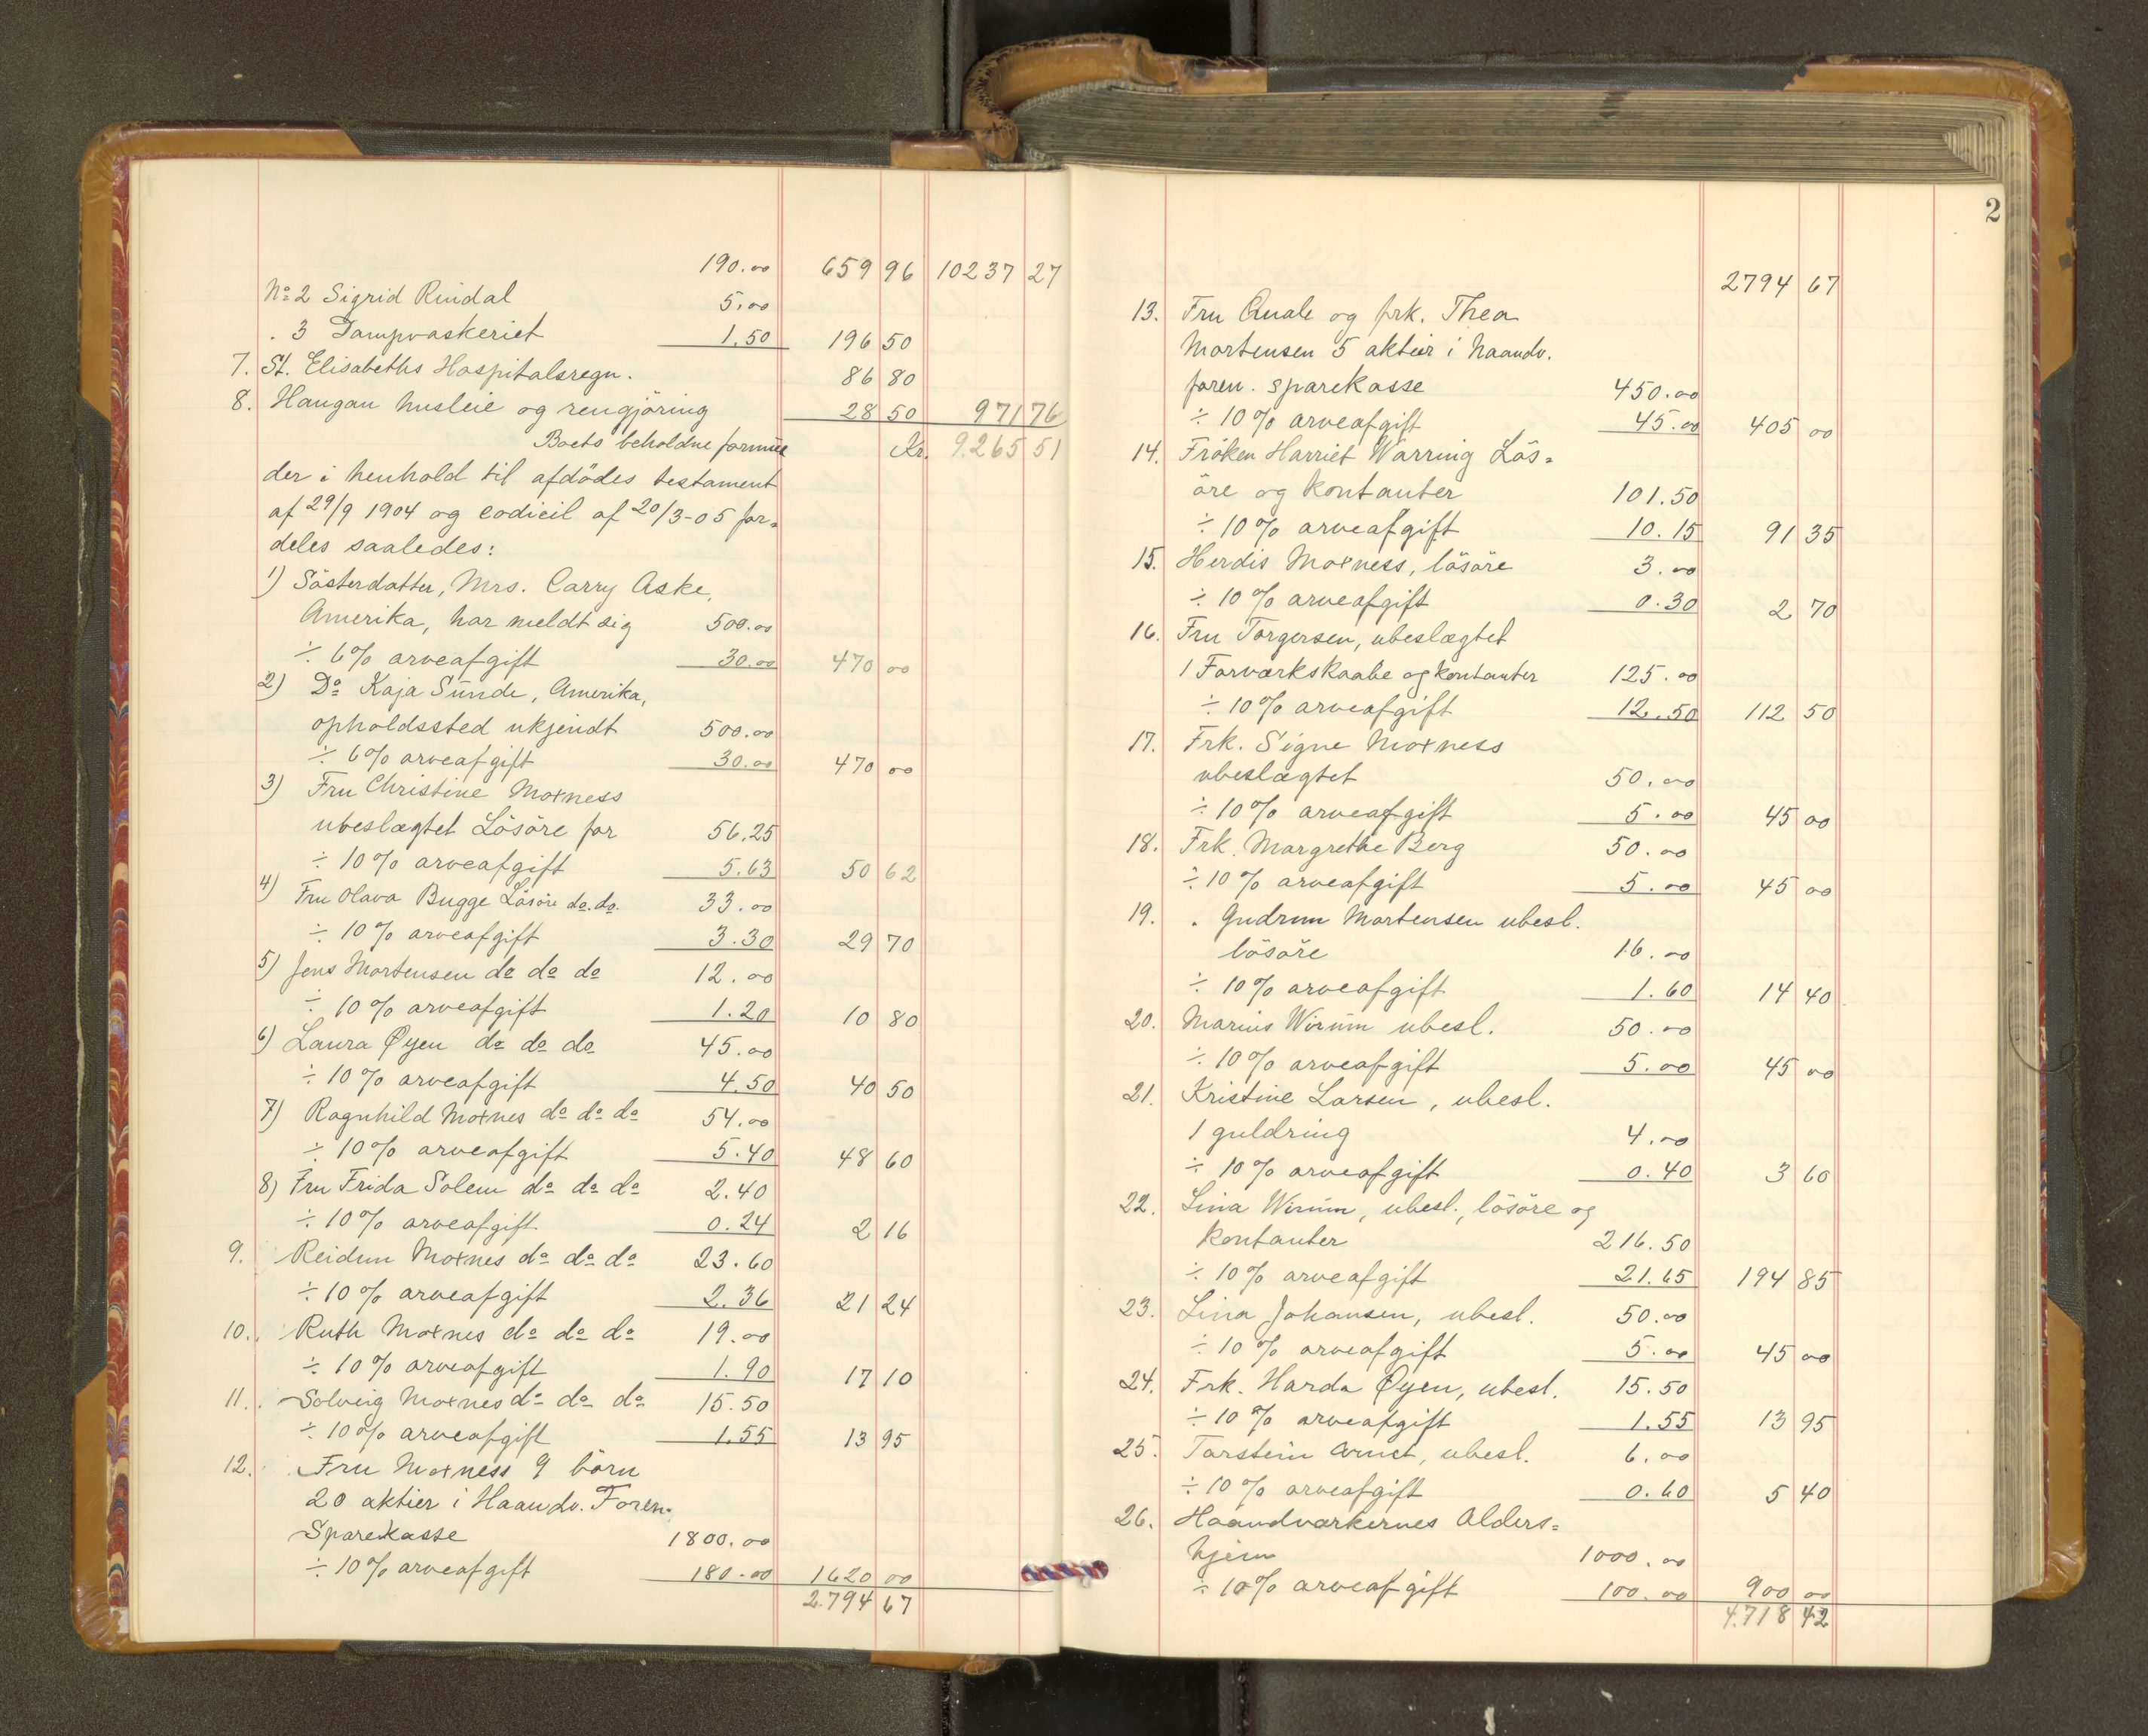 190.00 659 96 10237 27
No 2 Sigrid Rindal 5.00
. 3 Dampvaskeriet 1.50 196 50
7. St. Elisabeths Hospitalsregn. 86 80
8. Haugan husleie og rengjöring 28 50 971 76
Boets beholdne formue Kr. 9.265 51
der i henhold til afdödes testament
af 29/9 1904 og codicil af 20/3-05 for-
deles saaledes:
1) Sösterdatter, Mrs. Carry Aske,
Amerika, har meldt sig 500.00
÷ 6% arveafgift 30.00 470 00
2) Do Kaja Sunde, Amerika,
opholdssted ukjendt 500.00
÷ 6% arveafgift 30.00 470 00
3) Fru Christine Moxness
ubeslægtet Lösöre for 56.25
÷ 10% arveafgift 5.63 50 62
4) Fru Olava Bugge Lösöre do. do. 33.00
÷ 10% arveafgift 3.30 29 70
5) Jens Mortensen do do do 12.00
÷ 10% arveafgift 1.20 10 80
6) Laura Øyen do do do 45.00
÷ 10% arveafgift 4.50 40 50
7) Ragnhild Moxnes do do do 54.00
÷ 10% arveafgift 5.40 48 60
8) Fru Frida Solem do do do 2.40
÷ 10% arveafgift 0.24 2 16
9. Reidun Moxnes do do do 23.60
÷ 10% arveafgift 2.36 21 24
10. Ruth Moxnes do do do 19.00
÷ 10% arveafgift 1.90 17 10
11. Solveig Moxnes do do do 15.50
÷ 10% arveafgift 1.55 13 95
12. Fru Moxness 9 börn
20 aktier i Haandv. Foren.
Sparekasse 1800.00
÷ 10% arveafgift 180.00 1620 00
2.794 67
2
2794 67
13. Fru Quale og frk. Thea
Mortensen 5 aktier i Haandv.
foren. sparekasse 450.00
÷ 10% arveafgift 45.00 405 00
14. Fröken Harriet Warring Lös-
öre og kontanter 101.50
÷ 10% arveafgift 10.15 91 35
15. Herdis Moxness, lösöre 3.00
÷ 10% arveafgift 0.30 2 70
16. Fru Torgersen, ubeslægtet
1 Forværkskaabe og kontanter 125.00
÷ 10% arveafgift 12.50 112 50
17. Frk. Signe Moxness
ubeslægtet 50.00
÷ 10% arveafgift 5.00 45 00
18. Frk. Margrethe Berg 50.00
÷ 10% arveafgift 5.00 45 00
19. . Gudrun Mortensen ubesl.
lösöre 16.00
÷ 10% arveafgift 1.60 14 40
20. Marius Wirum ubesl. 50.00
÷ 10% arveafgift 5.00 45 00
21. Kristine Larsen, ubesl.
1 guldring 4.00
÷ 10% arveafgift 0.40 3 60
22. Lina Wirum, ubesl., lösöre og
kontanter 216.50
÷ 10% arveafgift 21.65 194 85
23. Lina Johansen, ubesl. 50.00
÷ 10% arveafgift 5.00 45 00
24. Frk. Harda Øyen, ubesl. 15.50
÷ 10% arveafgift 1.55 13 95
25. Torstein ubesl. 6.00
÷ 10% arveafgift 0.60 5 40
26. Haandværkernes Alders-
hjem 1000.00
÷ 10% arveafgift 100.00 900 00
4.718 42